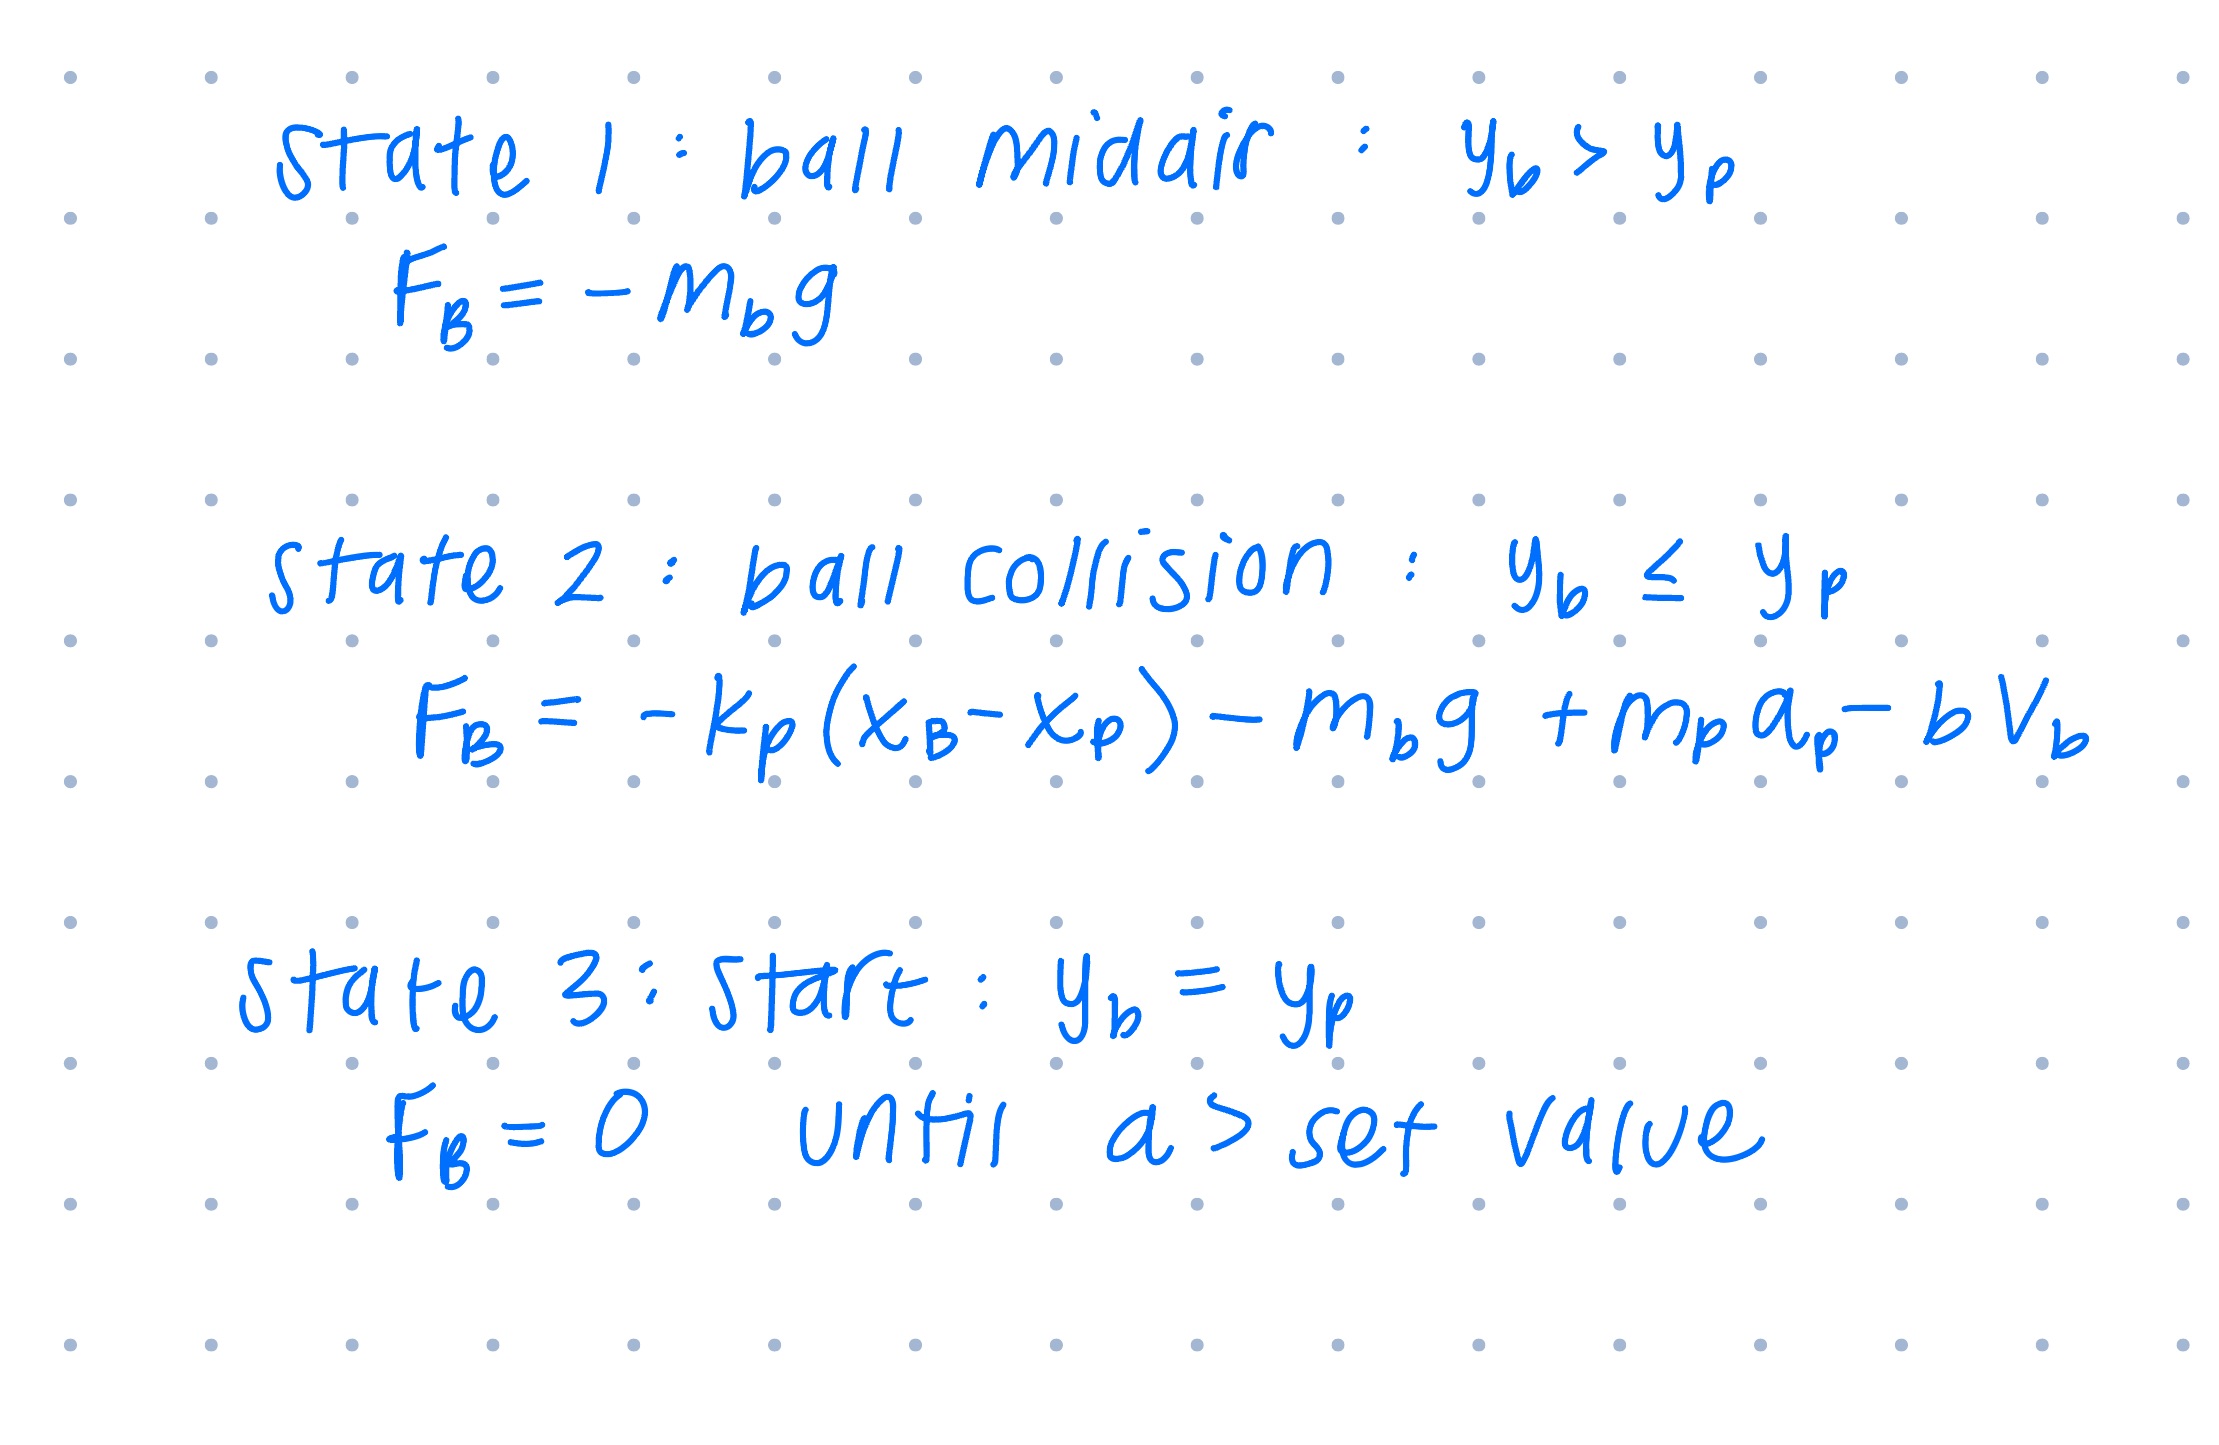 state 1 : ball midair : y_b > y_p
F_B = - m_b g
state 2 : ball collision : y_b ≤ y_p
F_B = - k_p (x_B - x_p) - m_b g + m_p a_p - b V_b
state 3 : start : y_b = y_p
F_B = 0 until a > set value